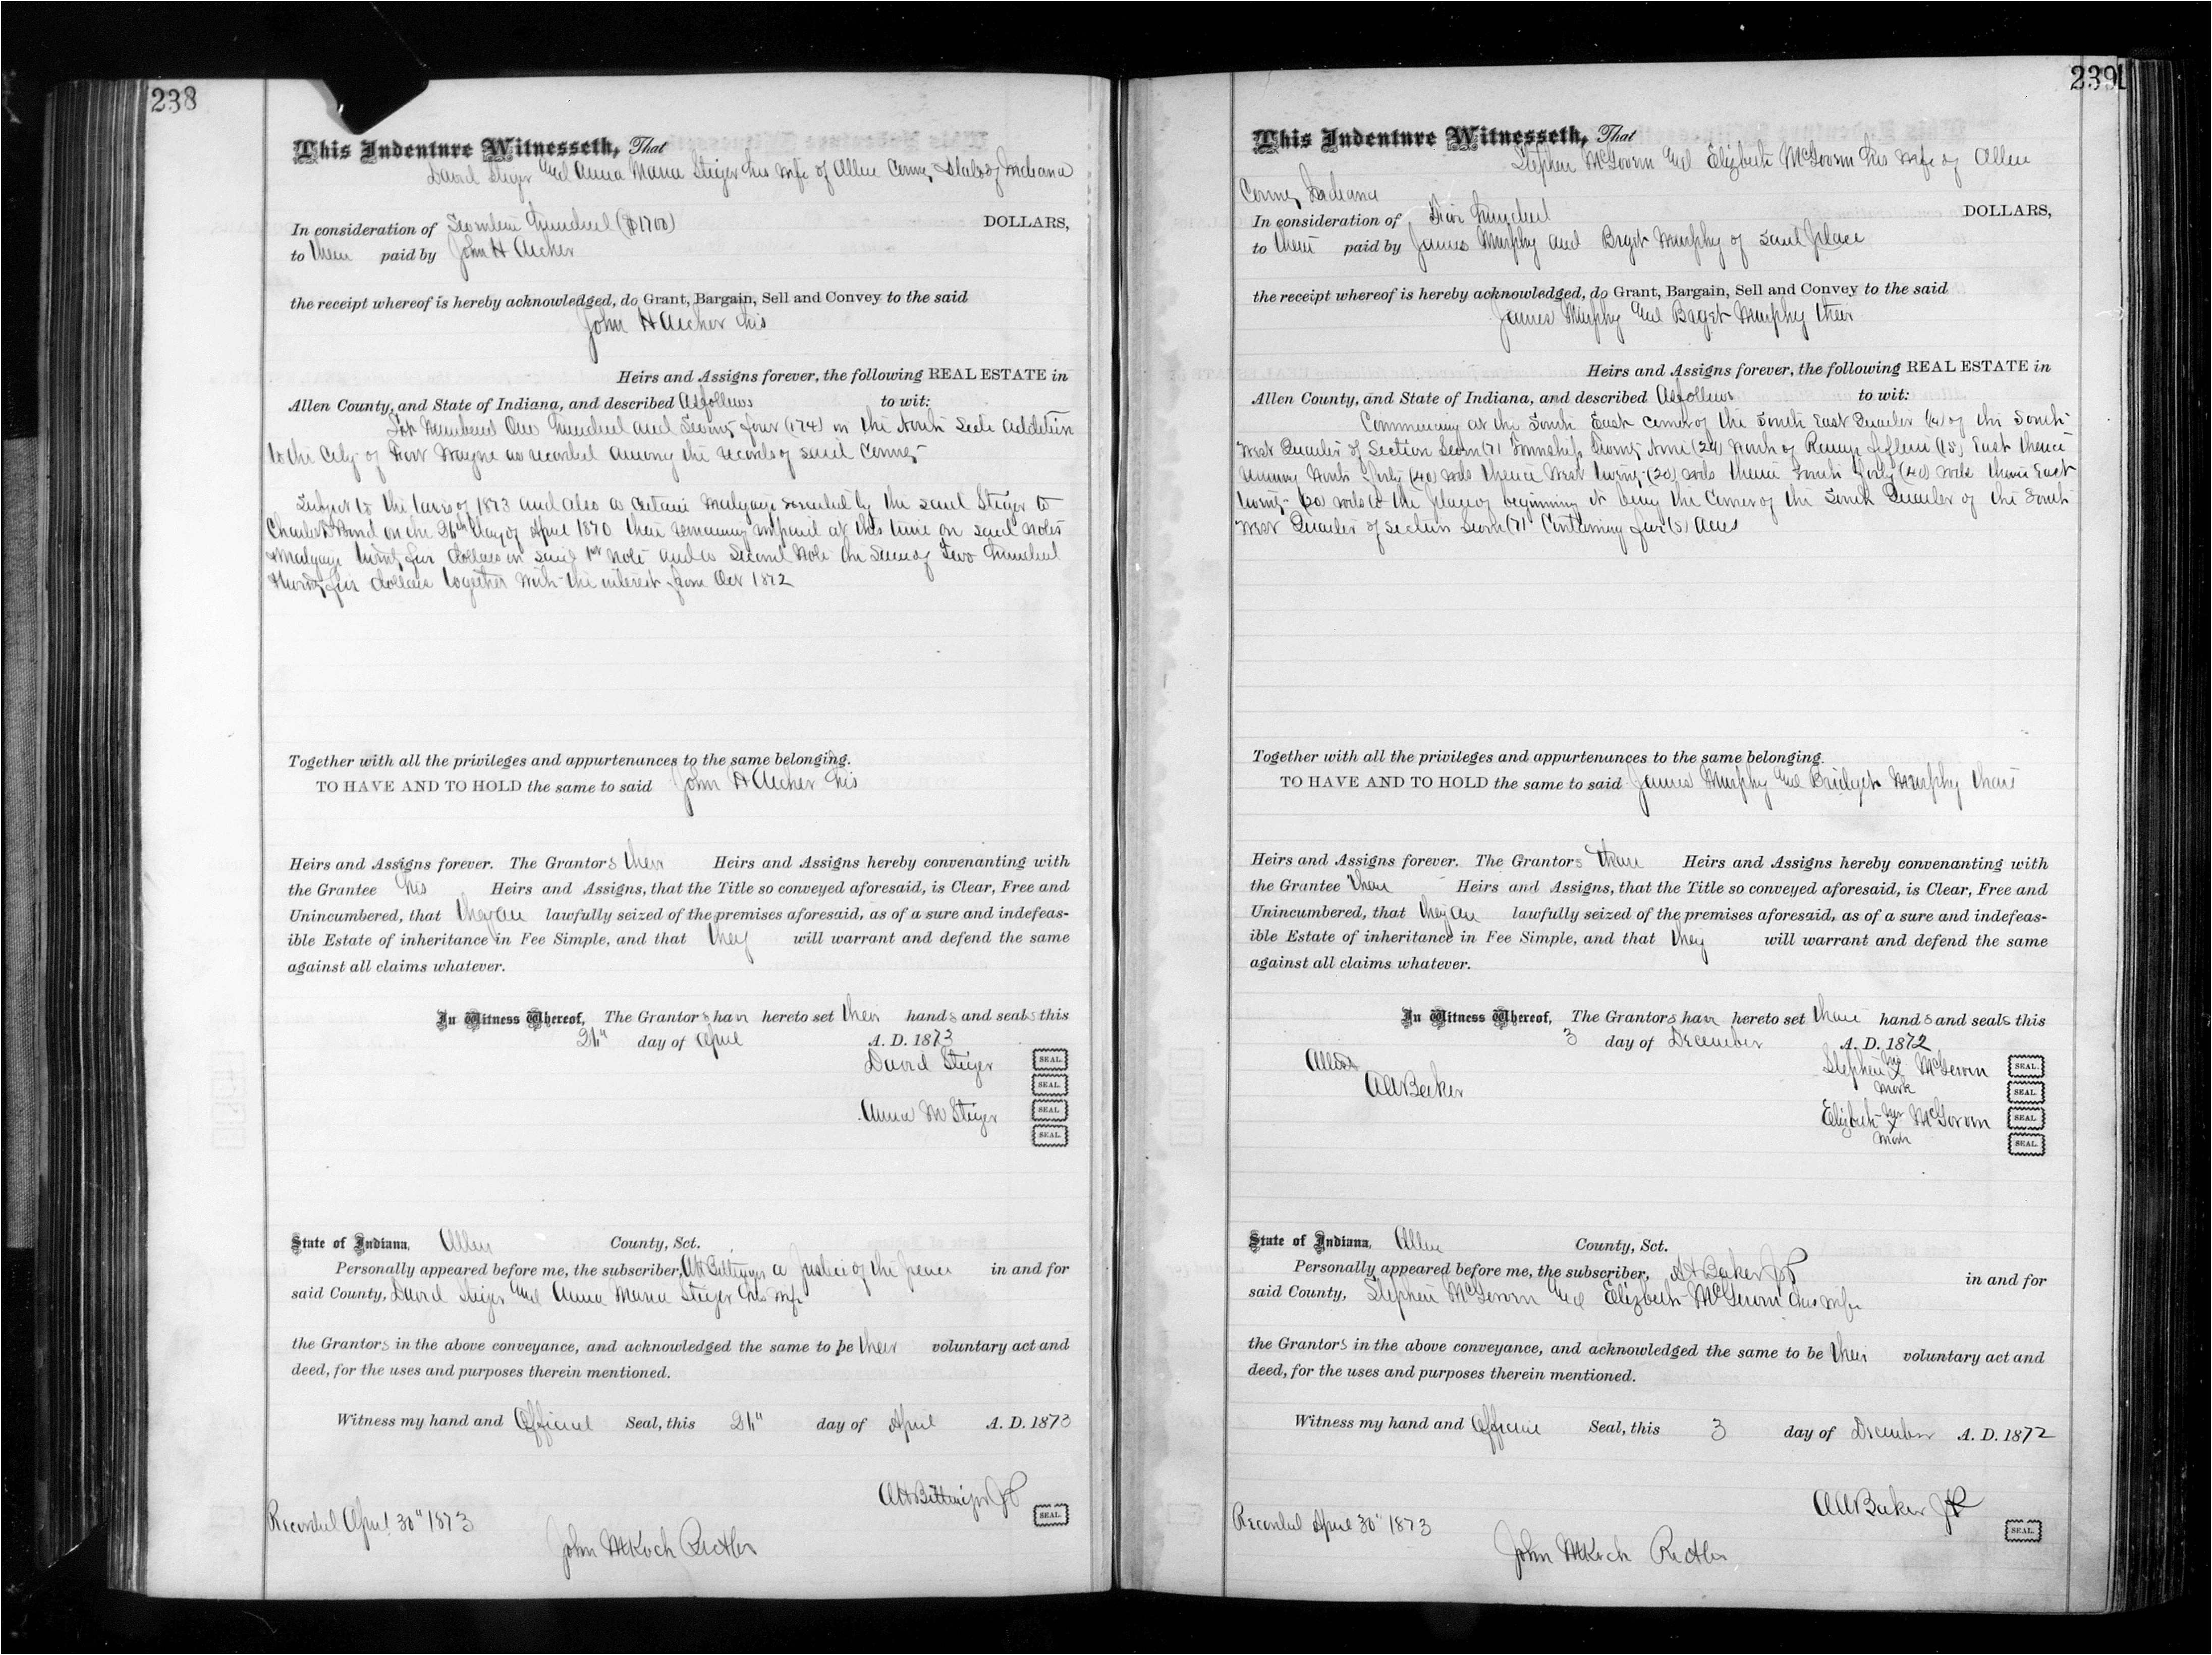 238
This Indenture Witnesseth, That
David Steger and Anna Maria Steger his wife of Allen County State of Indiana
In consideration of Seventeen hundred ($1700) DOLLARS,
to them paid by John H Archer
the receipt whereof is hereby acknowledged, do Grant, Bargain, Sell and Convey to the said
John H Archer his
Heirs and Assigns forever, the following REAL ESTATE in
Allen County, and State of Indiana, and described As follows to wit:
Lot Numbered One hundred and Seventy four (174) in the North Side Addition
to the City of Fort Wayne as recorded among the records of said County
Subject to the taxes of 1873 and also a certain mortgage executed by the said Steger to
Charles Bond on the 26th day of April 1870 there remaining unpaid at this time on said notes
& mortgage twenty five dollars on said 1st note and a second note the sum of Two hundred
& twenty five dollars together with the interest from Oct 1872
Together with all the privileges and appurtenances to the same belonging.
TO HAVE AND TO HOLD the same to said John H Archer his
Heirs and Assigns forever. The Grantors their Heirs and Assigns hereby convenanting with
the Grantee his Heirs and Assigns, that the Title so conveyed aforesaid, is Clear, Free and
Unincumbered, that they are lawfully seized of the premises aforesaid, as of a sure and indefeas-
ible Estate of inheritance in Fee Simple, and that they will warrant and defend the same
against all claims whatever.
In Witness Whereof, The Grantors have hereto set their hands and seals this
day of April A. D. 1873
David Steger SEAL.
SEAL.
Anna M Steger SEAL
SEAL.
State of Indiana, Allen County, Sct.
Personally appeared before me, the subscriber, AH Bittinger a Justice of the peace in and for
said County, David Steger and Anna Maria Steger his wife
the Grantors in the above conveyance, and acknowledged the same to be their voluntary act and
deed, for the uses and purposes therein mentioned.
Witness my hand and Official Seal, this day of April A. D. 1873
AH Bittinger JP SEAL.
Recorded April 30" 1873
John M Koch
239
This Indenture Witnesseth, That
Stephen McGovern and Elizbeth McGovern his wife of Allen
County Indiana
In consideration of hundred DOLLARS,
to them paid by James Murphy and Brget Murphy of said place
the receipt whereof is hereby acknowledged, do Grant, Bargain, Sell and Convey to the said
James Murphy and Brget Murphy their
Heirs and Assigns forever, the following REAL ESTATE in
Allen County, and State of Indiana, and described As follows to wit:
Commencing at the South East corner of the South East Quarter (1/4) of the South
West Quarter of Section Seven (7) Township Twenty Nine (29) North of Range fifteen (15) East thence
running North forty (40) rods thence West twenty (20) rods thence South forty (40) rods thence East
twenty (20) rods to the place of beginning it being the Corner of the South Quarter of the South
West Quarter of section seven (7) Containing five (5) acres
Together with all the privileges and appurtenances to the same belonging.
TO HAVE AND TO HOLD the same to said James Murphy and Bridget Murphy their
Heirs and Assigns forever. The Grantors their Heirs and Assigns hereby convenanting with
the Grantee their Heirs and Assigns, that the Title so conveyed aforesaid, is Clear, Free and
Unincumbered, that they are lawfully seized of the premises aforesaid, as of a sure and indefeas-
ible Estate of inheritance in Fee Simple, and that they will warrant and defend the same
against all claims whatever.
In Witness Whereof, The Grantors have hereto set their hands and seals this
3 day of December A. D. 1872
Attest Stephen his x mark McGovern SEAL.
AABaker SEAL.
Elizbeth her x mark McGovern SEAL
SEAL.
State of Indiana, Allen County, Sct.
Personally appeared before me, the subscriber, Baker JP in and for
said County, Stephen McGovern and Elizbeth McGovern his wife
the Grantors in the above conveyance, and acknowledged the same to be their voluntary act and
deed, for the uses and purposes therein mentioned.
Witness my hand and Seal, this 3 day of December A. D. 1872
AABaker JP SEAL.
Recorded April 30" 1873
John M Koch